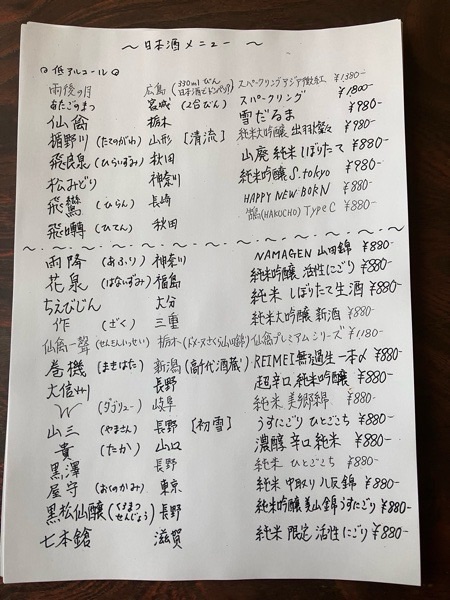 ～日本酒メニュー ～
低アルコール
雨後の月 広島 (330ml びん 日本酒でドンペリ?) スパークリング アジア微紅 ¥1,380-
あたごのまつ 宮城 (2合びん) スパークリング ¥1800-
仙禽 栃木 雪だるま ¥980-
楯野川 (たてのがわ) 山形 [清流] 純米大吟醸 出羽燦々 ¥980-
飛良泉 (ひらいずみ) 秋田 山廃 純米 しぼりたて ¥880-
松みどり 神奈川 純米吟醸 S.tokyo ¥980-
飛鸞 (ひらん) 長崎 HAPPY NEW BORN ¥880-
飛囀 (ひてん) 秋田 鵠(HAKUCHO) Type C ¥880-
雨降 (あふり) 神奈川 NAMAGEN 山田錦 ¥880-
花泉 (はないずみ) 福島 純米吟醸 活性にごり ¥880-
ちえびじん 大分 純米 しぼりたて生酒 ¥880-
作 (ざく) 三重 純米大吟醸 新酒 ¥880-
仙禽一聲 (せんきんいっせい) 栃木 (ドメーヌさくら山田錦) 仙禽プレミアムシリーズ ¥1,180-
巻機 (まきはた) 新潟 (高千代酒蔵) REIMEI 無濾過生一本〆 ¥880-
大信州 長野 超辛口 純米吟醸 ¥880-
W (ダブリュー) 岐阜 純米 美郷錦 ¥880-
山三 (やまさん) 長野 [初雪] うすにごり ひとごこち ¥880-
貴 (たか) 山口 濃醇 辛口 純米 ¥880-
黒澤 長野 純米 ひとごこち ¥880-
屋守 (おくのかみ) 東京 純米 中取り 八反錦 ¥880-
黒松仙醸 (くろまつ せんじょう) 長野 純米吟醸 美山錦うすにごり ¥880-
七本鎗 滋賀 純米 限定 活性にごり ¥880-